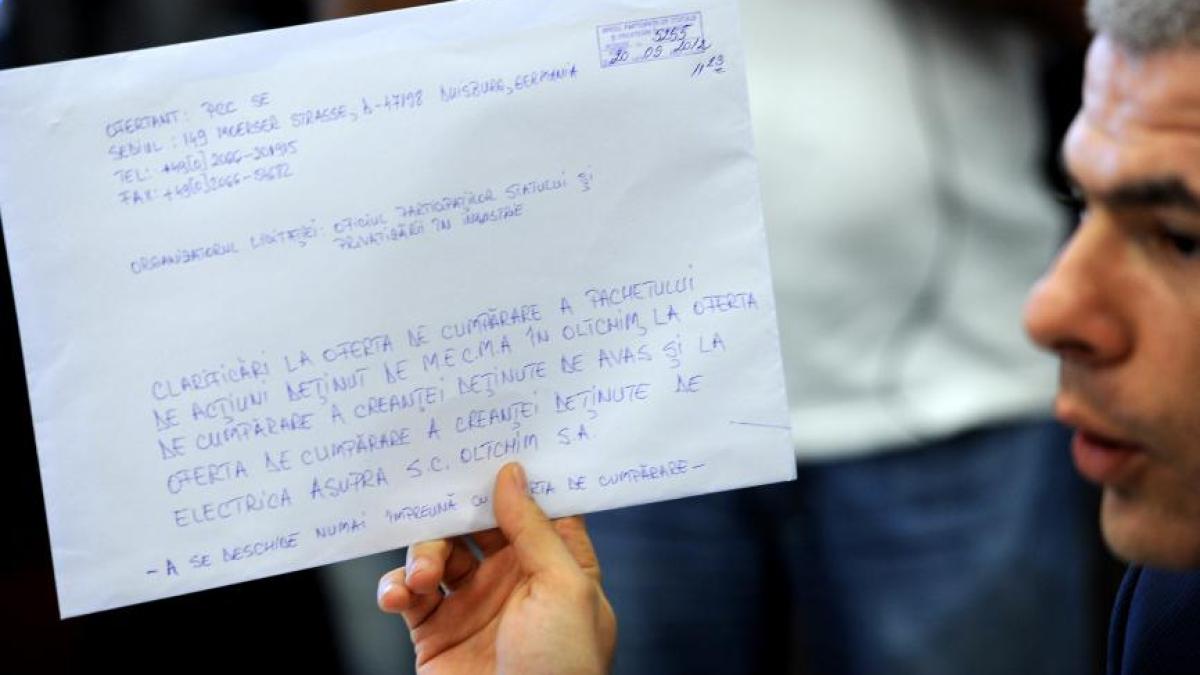 5255
20 09 2012
11 23
OFERTANT: PCC SE
SEDIUL: 149 MOERSER STRASSE, D-47198 DUISBURG, GERMANIA
TEL: +49[0]2066-201915
FAX: +49[0]2066-54672
ORGANIZATORUL LICITAȚIEI: OFICIUL PARTICIPAȚIILOR STATULUI ȘI
PRIVATIZĂRII ÎN INDUSTRIE
CLARIFICĂRI LA OFERTA DE CUMPĂRARE A PACHETULUI
DE ACȚIUNI DEȚINUT DE M.E.C.M.A ÎN OLTCHIM, LA OFERTA
DE CUMPĂRARE A CREANȚEI DEȚINUTE DE AVAS ȘI LA
OFERTA DE CUMPĂRARE A CREANȚEI DEȚINUTE DE
ELECTRICA ASUPRA S.C. OLTCHIM S.A.
- A SE DESCHIDE NUMAI ÎMPREUNĂ CU DE CUMPĂRARE -